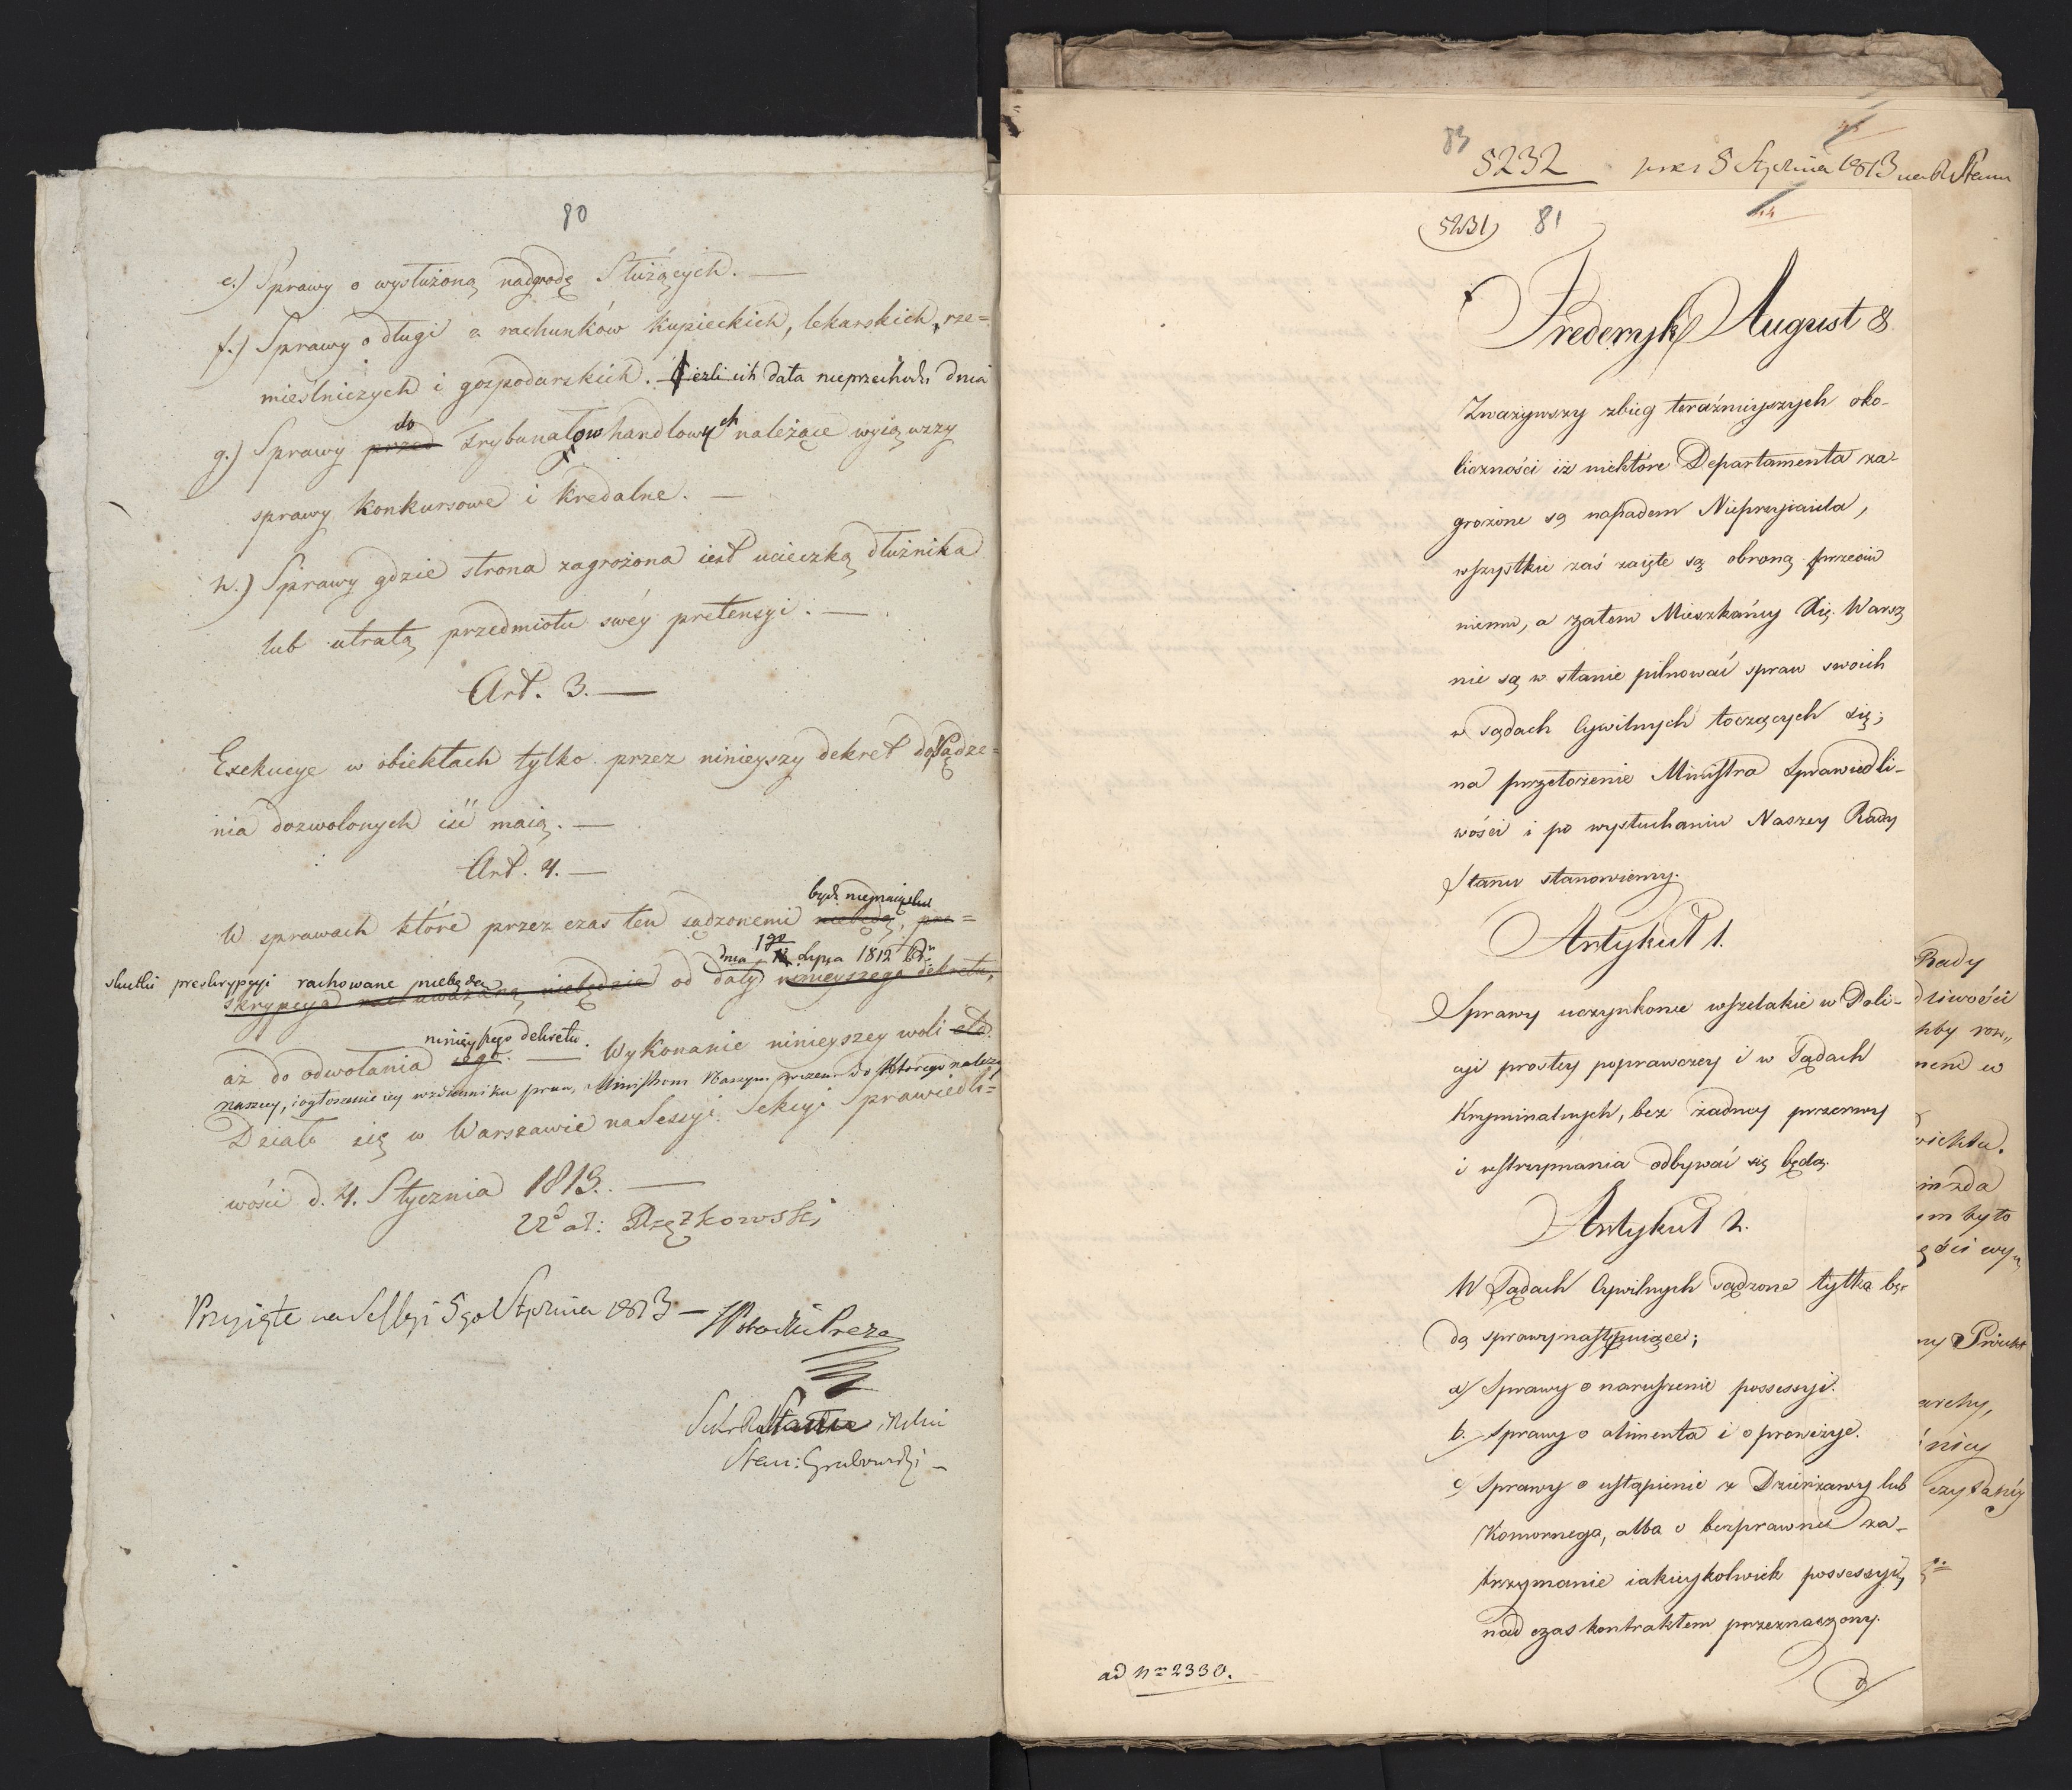 80
e.) Sprawy o wysłużoną nadgrodę Służących. —
f.) Sprawy o długi z rachunków kupieckich, lekarskich, rze=
mieślniczych i gospodarskich. ieżli ich data nieprzechodzi dnia
do
g.) Sprawy przed Trybunałow handlowych należące wyiąwszy
sprawy konkursowe i kredalne. —
h.) Sprawy gdzie strona zagrożona iest ucieczką dłużnika
lub utratą przedmiotu swéy pretensyi. —
Art. 3. —
Exekucye w obiektach tylko przez ninieyszy dekret do Sądze=
nia dozwolonych iść maią. —
Art. 4. —
bydź niemaią
W sprawach które przez czas ten sądzonemi niebędą, pre=
1go
dnia Lipca 1812
skutki preskrypcyi rachowane niebędą
skrypcya uważaną niebędzie od daty ninieyszego dekretu,
ninieyszego dekretu.
aż do odwołania iego. — Wykonanie ninieyszey woli etc.
naszey, i ogłoszenie iey w dzienniku praw, Ministrom Naszym do którego należy
Działo się w Warszawie na Sessyi Sekcyi Sprawiedli=
wości d. 4. Stycznia 1813. —
Przyięte na Sessyi 5go Stycznia 1813 —
Stan: Grabowski —
83
5232 5 Stycznia 1813 Stanu
5231 81
Frederyk August &
Zważywszy zbieg teraźnieyszych oko-
liczności iż niektóre Departamenta za-
grożone są napadem Nieprzyiaciela,
wszystkie zaś zaięte są obroną przeciw
niemu, a zatem Mieszkańcy Xię. Warsz
nie są w stanie pilnować spraw swoich
w sądach Cywilnych toczących się;
na przełożenie Ministra Sprawiedli-
wości i po wysłuchaniu Naszey Rady
Stanu stanowiemy.
Artykuł 1.
Sprawy uczynkowe wszelakie w Poli-
cyi prostey poprawczey i w Sądach
Kryminalnych, bez żadney przerwy
i wstrzymania odbywać się będą.
Artykuł 2.
W Sądach Cywilnych sądzone tylko bę-
dą sprawy następuiące;
a/ Sprawy o naruszenie possessyi.
b. Sprawy o alimenta i o prowizye.
c/ Sprawy o ustąpienie z Dzierżawy lub
Komornego, albo o bezprawne za-
trzymanie iakieykolwiek possessyi,
nad czas kontraktem przeznaczony.
d/
ad Nrm 2330.
Rady